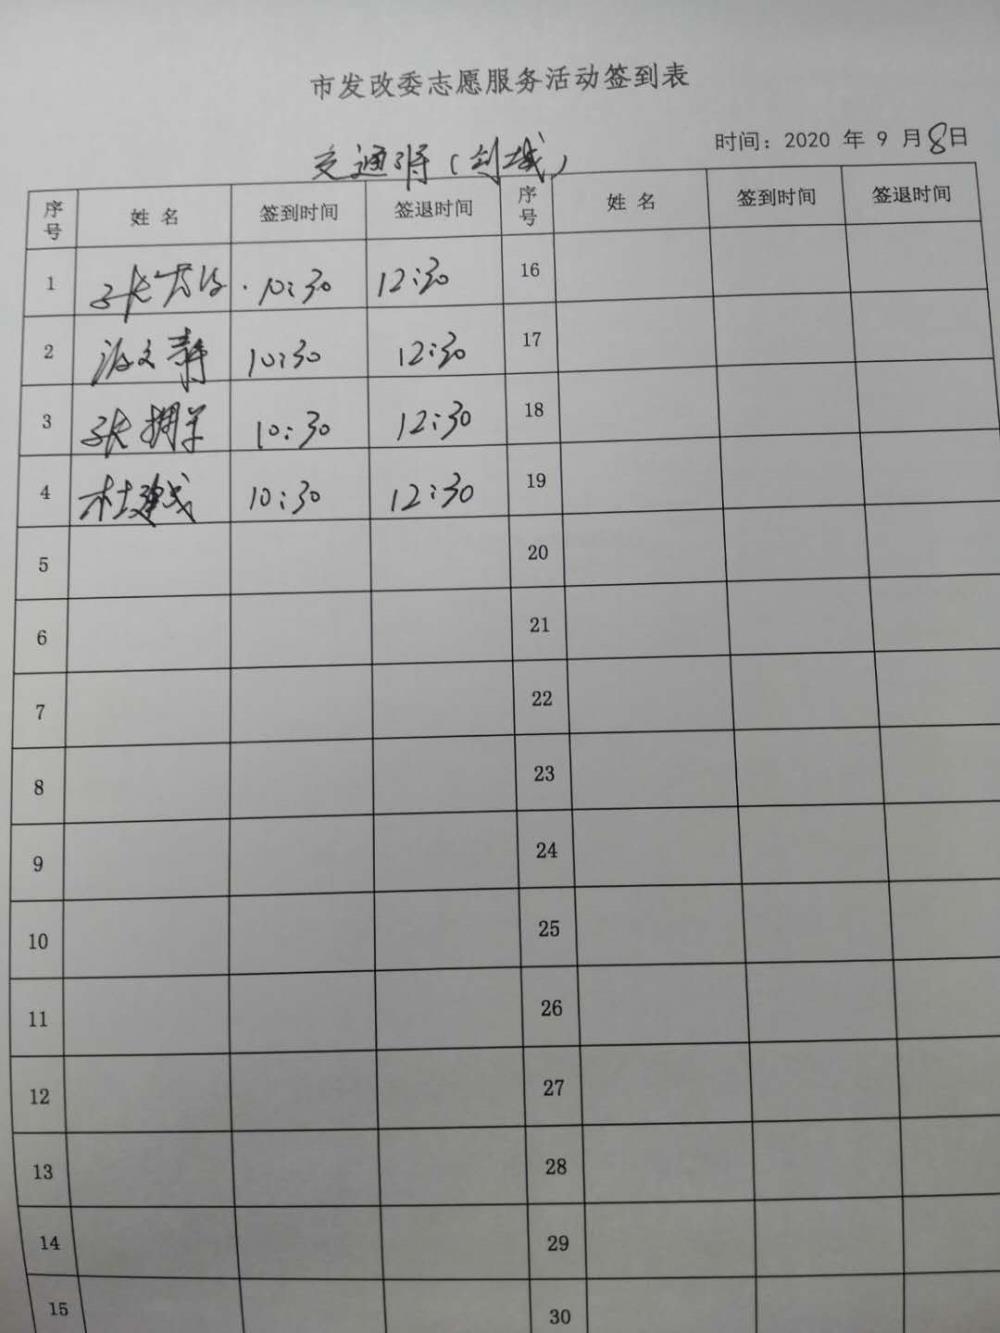 市发改委志愿服务活动签到表
时间：2020 年 9 月 8 日
交通 (创城)
序号 姓 名 签到时间 签退时间 序号 姓 名 签到时间 签退时间
1 张 10:30 12:30 16
2 文静 10:30 12:30 17
3 张拥军 10:30 12:30 18
4 杜建成 10:30 12:30 19
5 20
6 21
7 22
8 23
9 24
10 25
11 26
12 27
13 28
14 29
15 30